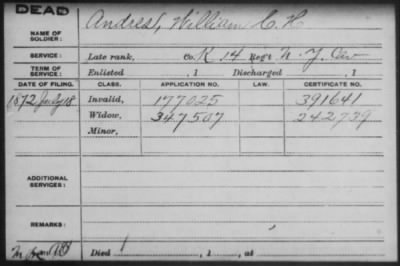 DEAD
NAME OF SOLDIER: Andrest, William C. H
SERVICE: Late rank, Co. K 14 Reg't N. Y. Cav
TERM OF SERVICE: Enlisted , 1 Discharged , 1
DATE OF FILING. CLASS. APPLICATION NO. LAW. CERTIFICATE NO.
1872 July 18 Invalid, 177025 391641
Widow, 347507
Minor,
ADDITIONAL SERVICES:
REMARKS:
Died , 1 , at